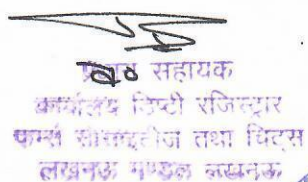 सहायक
कार्यालय डिप्टी रजिस्ट्रार
फर्म्स सोसाइटीज तथा चिट्स
लखनऊ मण्डल लखनऊ